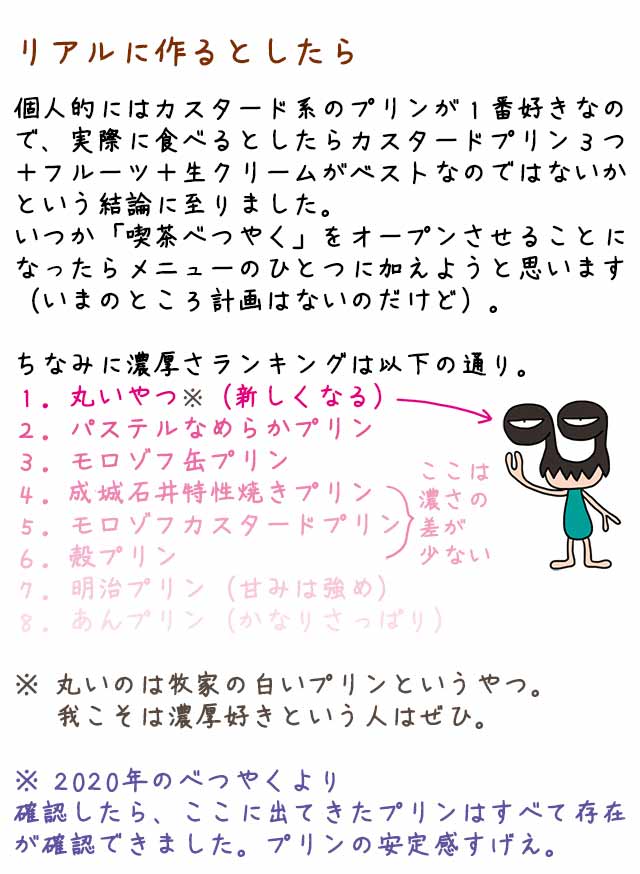 リアルに作るとしたら
個人的にはカスタード系のプリンが1番好きなの
で、実際に食べるとしたらカスタードプリン3つ
+フルーツ+生クリームがベストなのではないか
という結論に至りました。
いつか「喫茶べつやく」をオープンさせることに
なったらメニューのひとつに加えようと思います
（いまのところ計画はないのだけど）。
ちなみに濃厚さランキングは以下の通り。
1. 丸いやつ※（新しくなる）
2. パステルなめらかプリン
3. モロゾフ缶プリン
4. 成城石井特性焼きプリン
5. モロゾフカスタードプリン
6. 殻プリン
7. 明治プリン（甘みは強め）
8. あんプリン（かなりさっぱり）
ここは
濃さの
差が
少ない
※ 丸いのは牧家の白いプリンというやつ。
我こそは濃厚好きという人はぜひ。
※ 2020年のべつやくより
確認したら、ここに出てきたプリンはすべて存在
が確認できました。プリンの安定感すげえ。